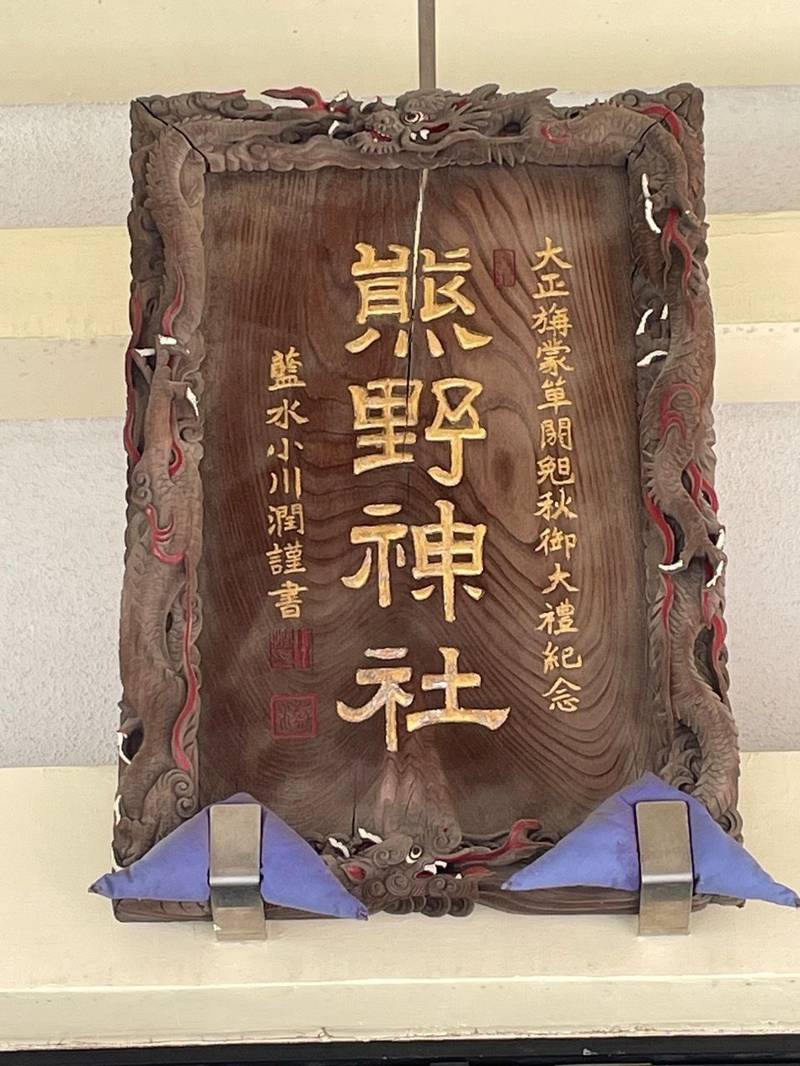 大正旃蒙単閼秋御大禮紀念
熊野神社
藍水小川潤謹書